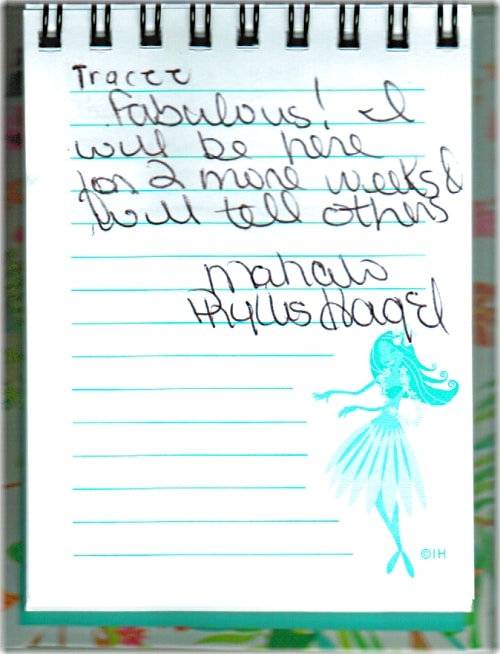 Tracee
Fabulous! I
will be here
for 2 more weeks &
will tell others
Mahalo
Phyllis Nagel
©IH